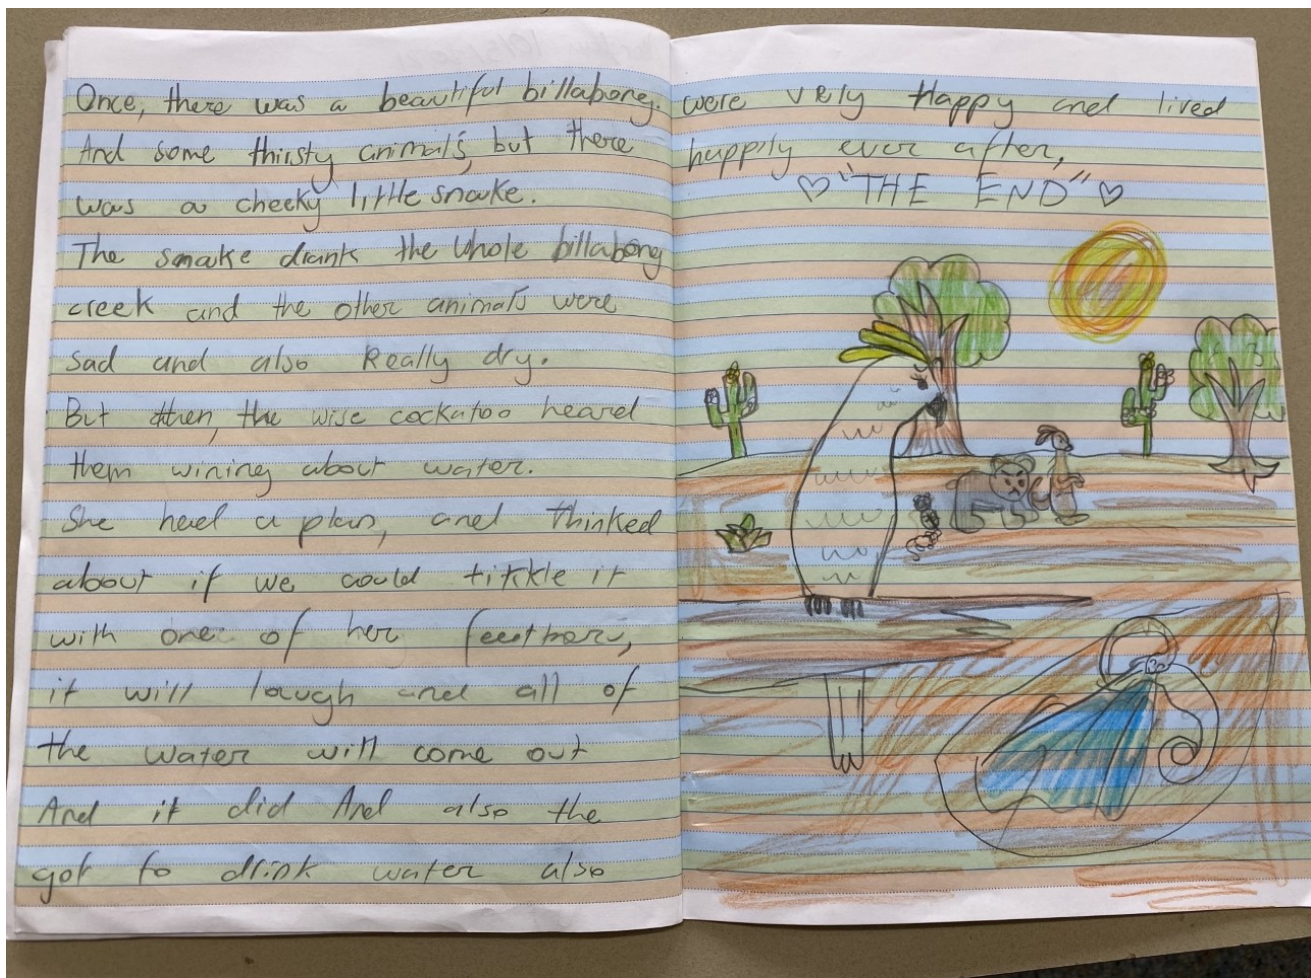 Once, there was a beautiful billabong.
And some thirsty animals, but there
was a cheeky little snake.
The snake drank the whole billabong
creek and the other animals were
sad and also Really dry.
But then, the wise cockatoo heard
them wining about water.
She had a plan, and thinked
about if we could tickle it
with one of her
it will laugh and all of
the water will come out
And it did And also the
got to drink water also
were very Happy and lived
happily ever after,
♡ "THE END" ♡